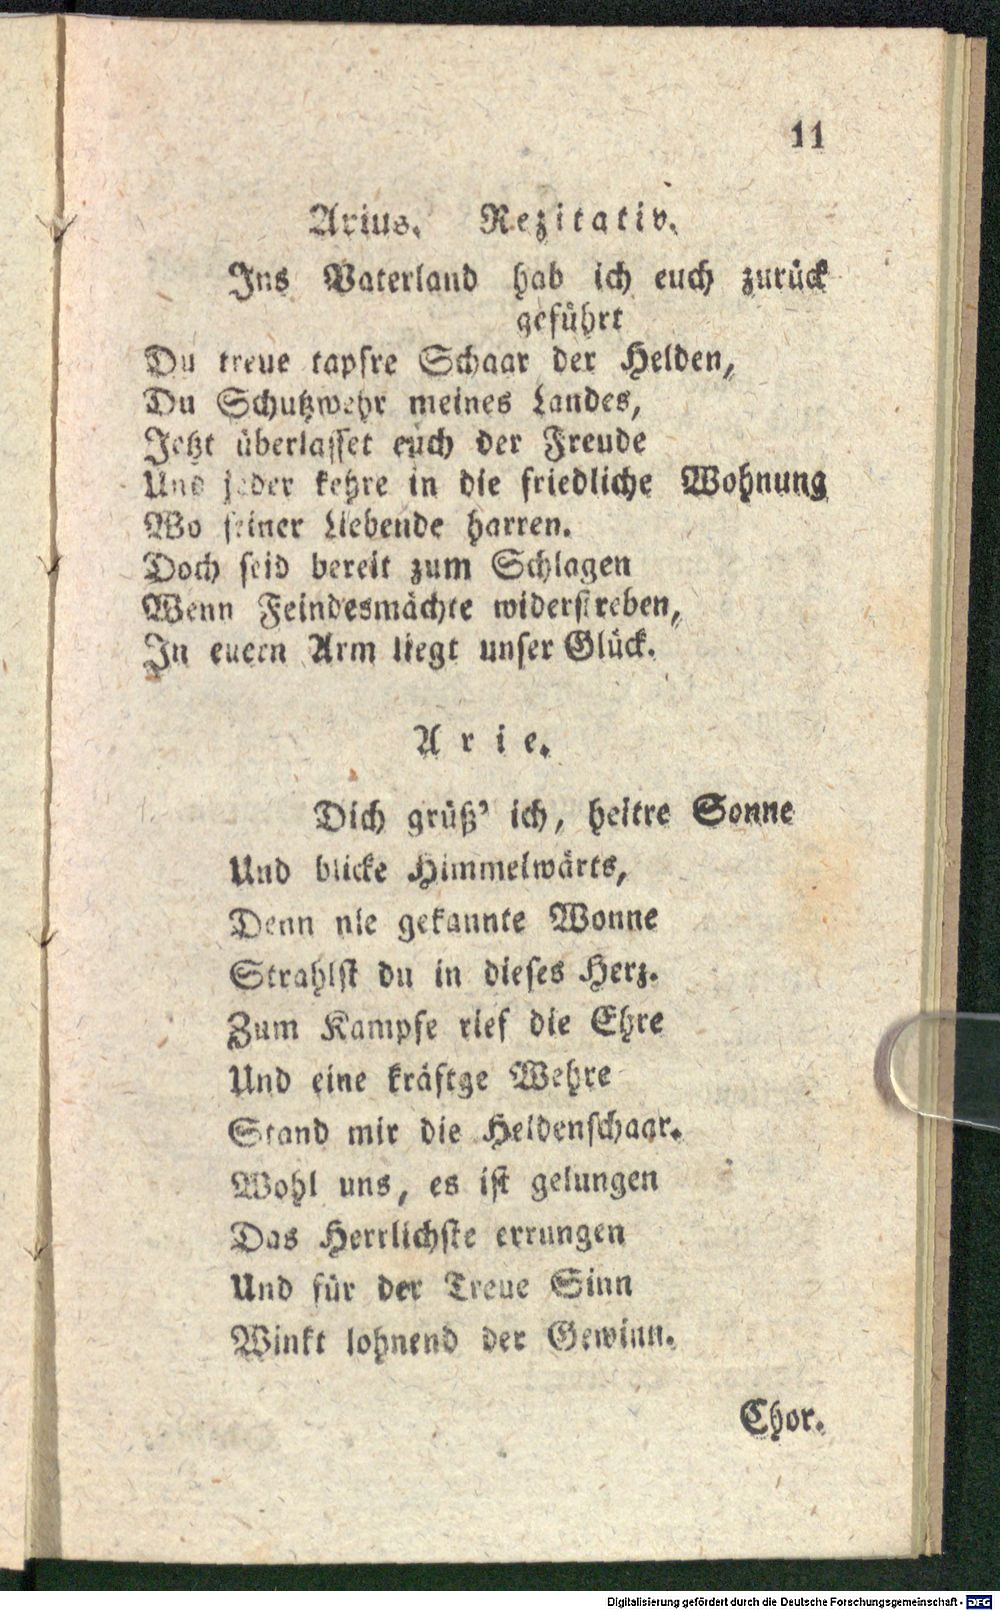 11
Arius. Rezitativ.
Ins Vaterland hab ich euch zurück
geführt
Du treue tapfre Schaar der Helden,
Du Schutzwehr meines Landes,
Jetzt überlasset euch der Freude
Und jeder kehre in die friedliche Wohnung
Wo seiner Liebende harren.
Doch seid bereit zum Schlagen
Wenn Feindesmächte widerstreben,
In euern Arm liegt unser Glück.
Arie.
Dich grüß' ich, heitre Sonne
Und blicke Himmelwärts,
Denn nie gekannte Wonne
Strahlst du in dieses Herz.
Zum Kampfe rief die Ehre
Und eine kräftge Wehre
Stand mir die Heldenschaar.
Wohl uns, es ist gelungen
Das Herrlichste errungen
Und für der Treue Sinn
Winkt lohnend der Gewinn.
Chor.
Digitalisierung gefördert durch die Deutsche Forschungsgemeinschaft - DFG